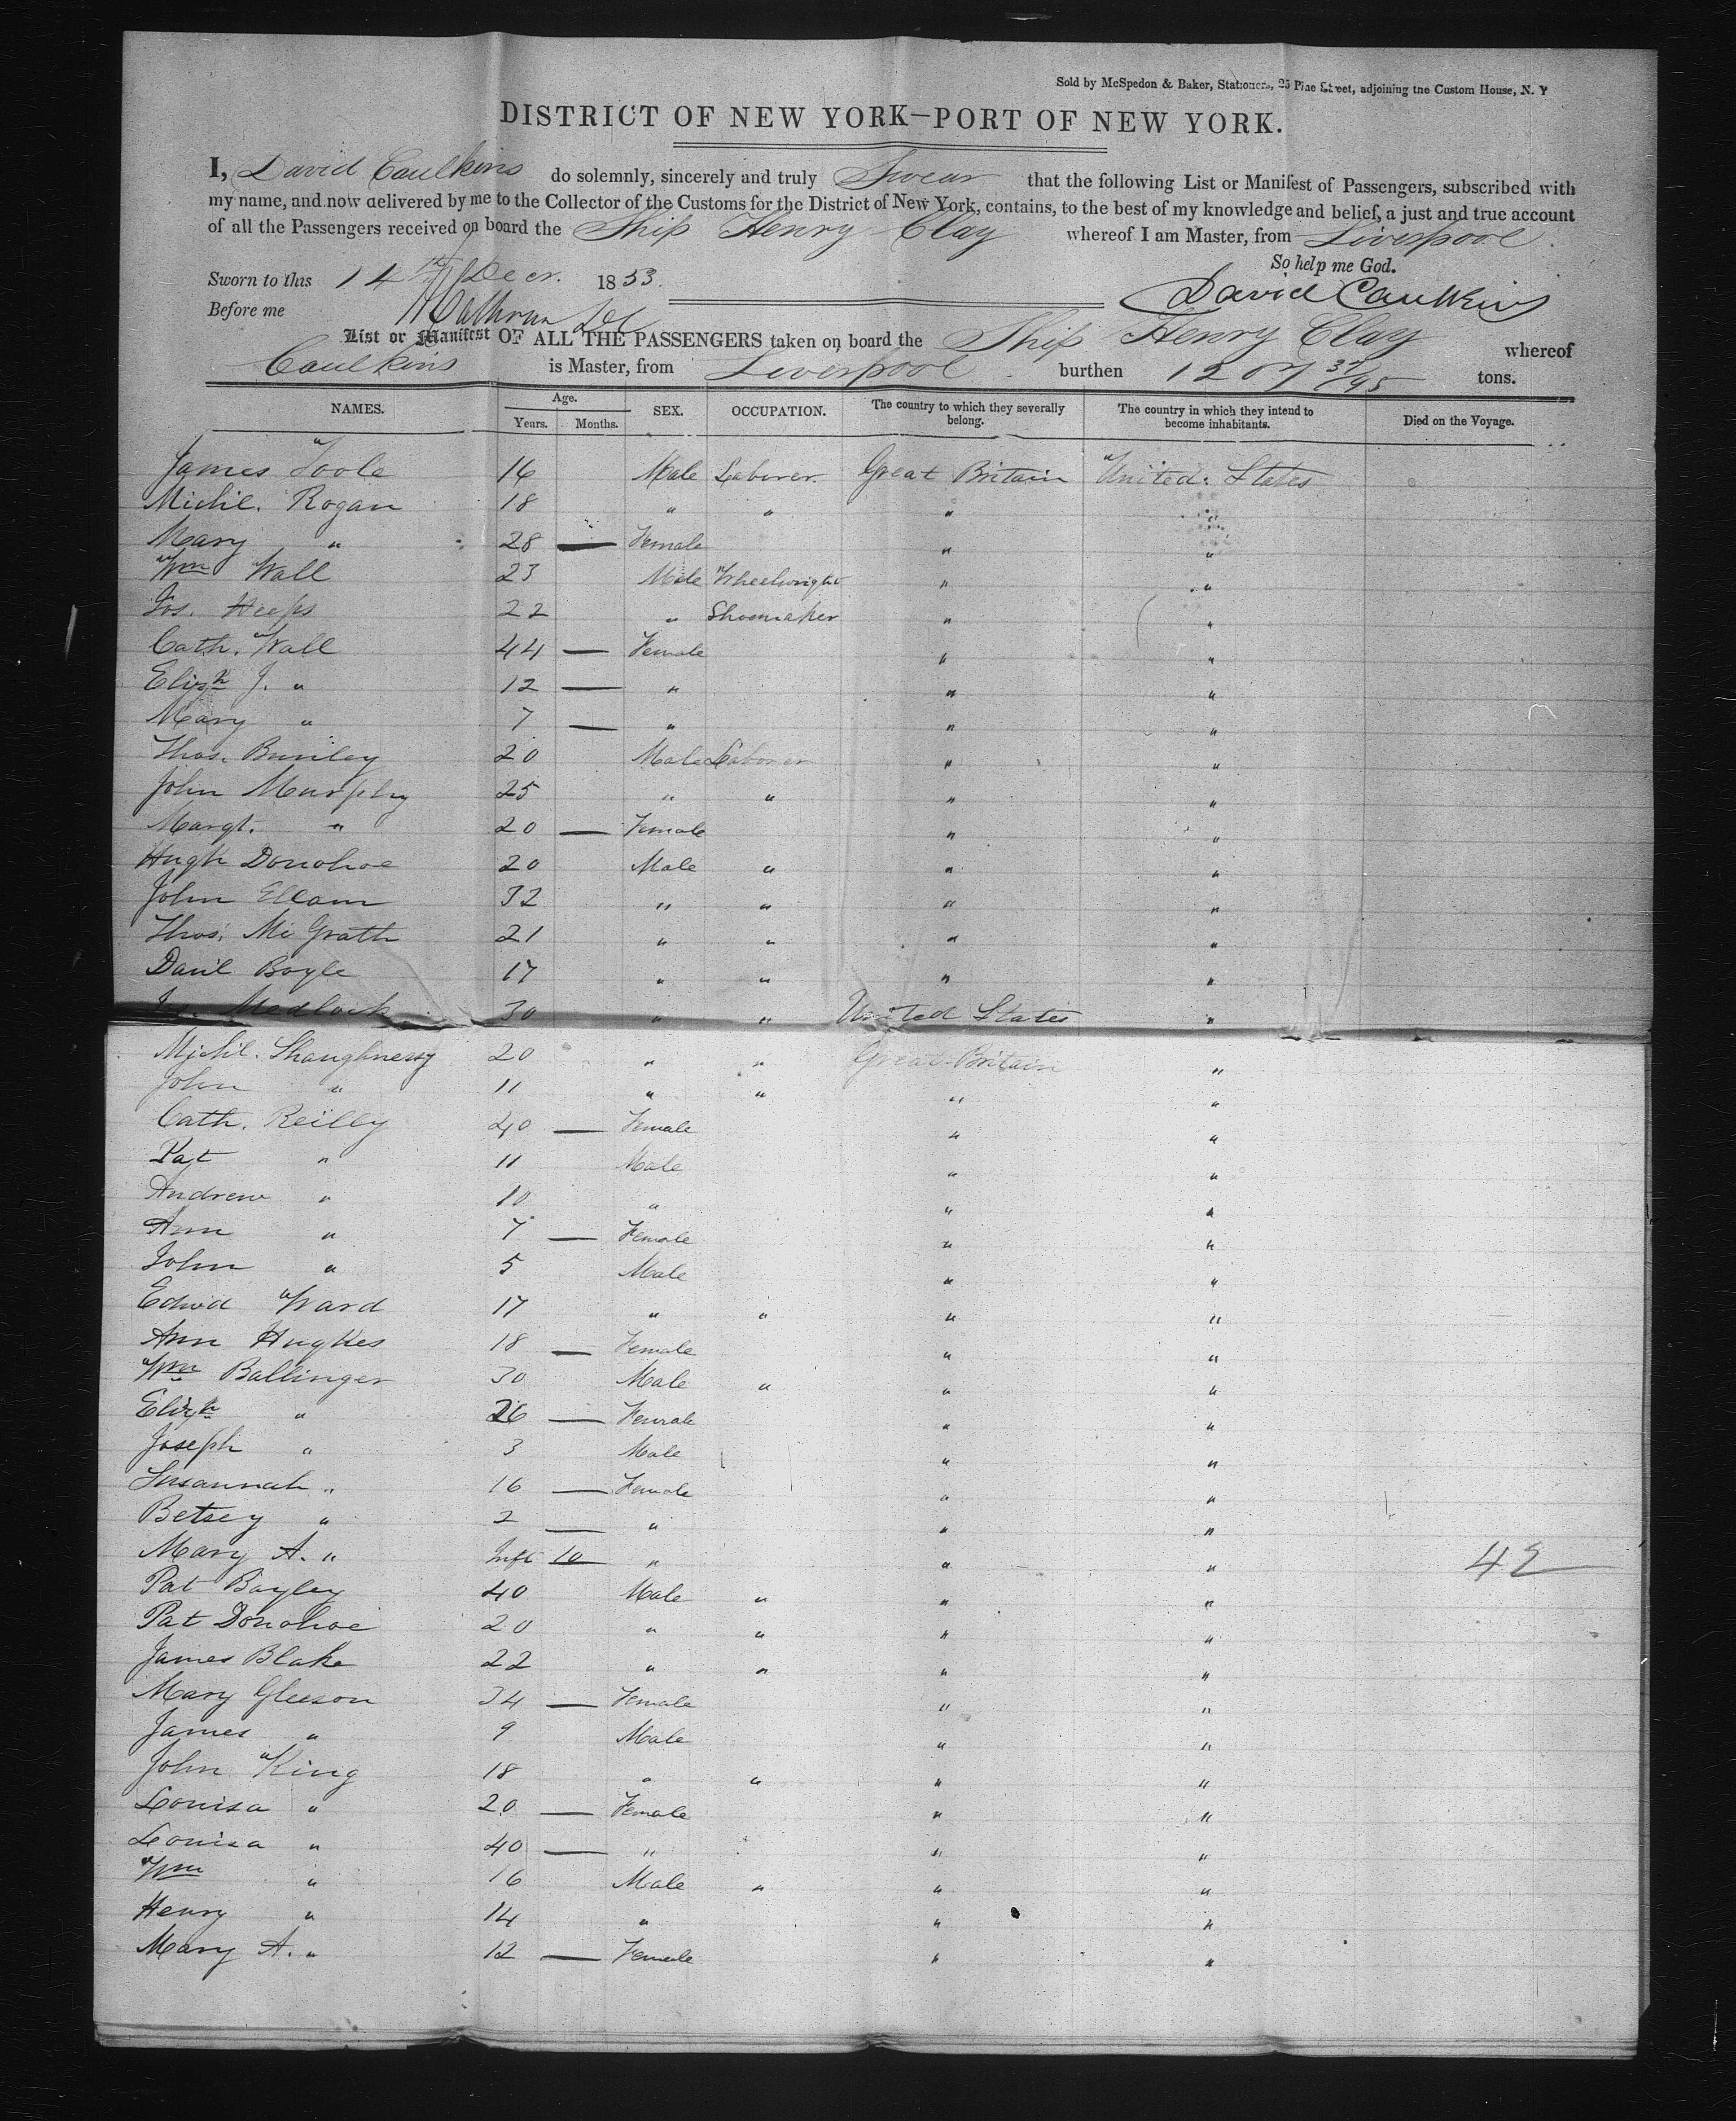 Sold by McSpedon & Baker, Stationers, 25 Pine Street, adjoining the Custom House, N. Y
DISTRICT OF NEW YORK—PORT OF NEW YORK.
I, David Caulkins do solemnly, sincerely and truly Swear that the following List or Manifest of Passengers, subscribed with
my name, and now delivered by me to the Collector of the Customs for the District of New York, contains, to the best of my knowledge and belief, a just and true account
of all the Passengers received on board the Ship Henry Clay whereof I am Master, from Liverpool.
So help me God.
Sworn to this 14th Decr. 1853.
David Caulkins
Before me
List or Manifest OF ALL THE PASSENGERS taken on board the Ship Henry Clay whereof
Caulkins is Master, from Liverpool burthen 1207 37/95 tons.
NAMES. Age. Years. Months. SEX. OCCUPATION. The country to which they severally belong. The country in which they intend to become inhabitants. Died on the Voyage.
James Toole 16 Male Laborer. Great Britain United States
Michl. Rogan 18 " " " "
Mary " 28 — Female " "
Wm Wall 23 Male Wheelwright " "
Jos. Heeps 22 " Shoemaker " "
Cath. Wall 44 — Female " "
Elizh J. " 12 — " " "
Mary " 7 — " " "
Thos. 20 Male Laborer " "
John Murphy 25 " " " "
Margt. " 20 — Female " "
Hugh Donohoe 20 Male " " "
John Ellam 32 " " " "
Thos. Mc Grath 21 " " " "
Danl Boyle 17 " " " "
Medlock 30 " " United States "
Michl. Shaughnessy 20 " " Great Britain "
John " 11 " " " "
Cath. Reilly 40 — Female " "
Pat " 11 Male " "
Andrew " 10 " " "
Ann " 7 — Female " "
John " 5 Male " "
Edwd Ward 17 " " " "
Ann Hughes 18 — Female " "
Wm Ballinger 30 Male " " "
Elizh " 26 — Female " "
Joseph " 3 Male " "
Susannah " 16 — Female " "
Betsey " 2 — " " "
Mary A. " Inft 10 " " " 42
Pat Bayley 40 Male " " "
Pat Donohoe 20 " " " "
James Blake 22 " " " "
Mary Gleeson 34 — Female " "
James " 9 Male " "
John King 18 " " " "
Louisa " 20 — Female " "
Louisa " 40 — " " "
Wm " 16 Male " " "
Henry " 14 " " "
Mary A. " 12 — Female " "